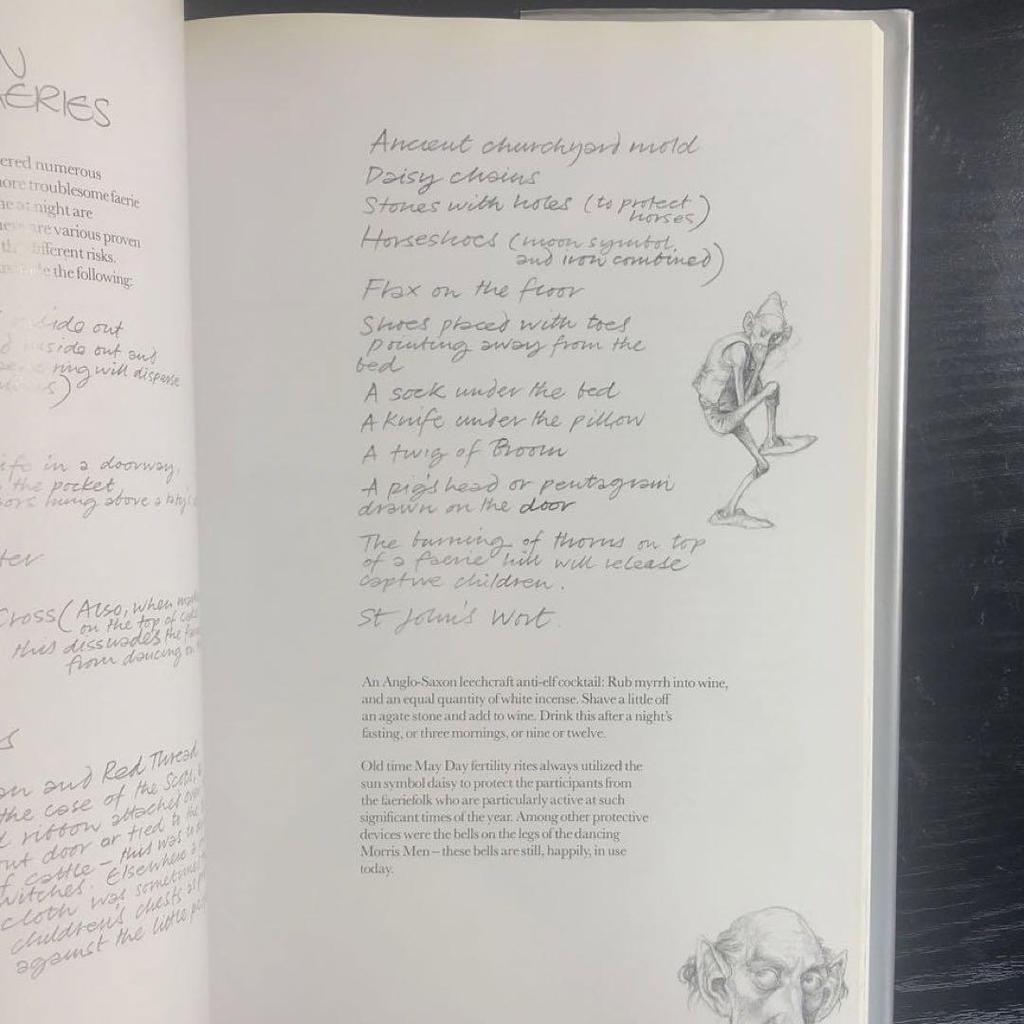 ERIES
ered numerous
ore troublesome faerie
at night are
are various proven
different risks.
the following:
side out
inside out and
ring will disperse
in a doorway,
the pocket,
hung above a
Cross (Also, when
on the top of
this dissuades the
from dancing on
and Red Thread
the case of the
ribbon attached over
door or tied to the
cattle – this was to
witches. Elsewhere a
cloth was
children's chests as
against the little
Ancient churchyard mold
Daisy chains
Stones with holes (to protect
horses)
Horseshoes (moon symbol
and iron combined)
Flax on the floor
Shoes placed with toes
pointing away from the
bed
A sock under the bed
A knife under the pillow
A twig of Broom
A pig's head or pentagram
drawn on the door
The burning of thorns on top
of a faerie hill will release
captive children.
St John's Wort.
An Anglo-Saxon leechcraft anti-elf cocktail: Rub myrrh into wine,
and an equal quantity of white incense. Shave a little off
an agate stone and add to wine. Drink this after a night's
fasting, or three mornings, or nine or twelve.
Old time May Day fertility rites always utilized the
sun symbol daisy to protect the participants from
the faeriefolk who are particularly active at such
significant times of the year. Among other protective
devices were the bells on the legs of the dancing
Morris Men – these bells are still, happily, in use
today.